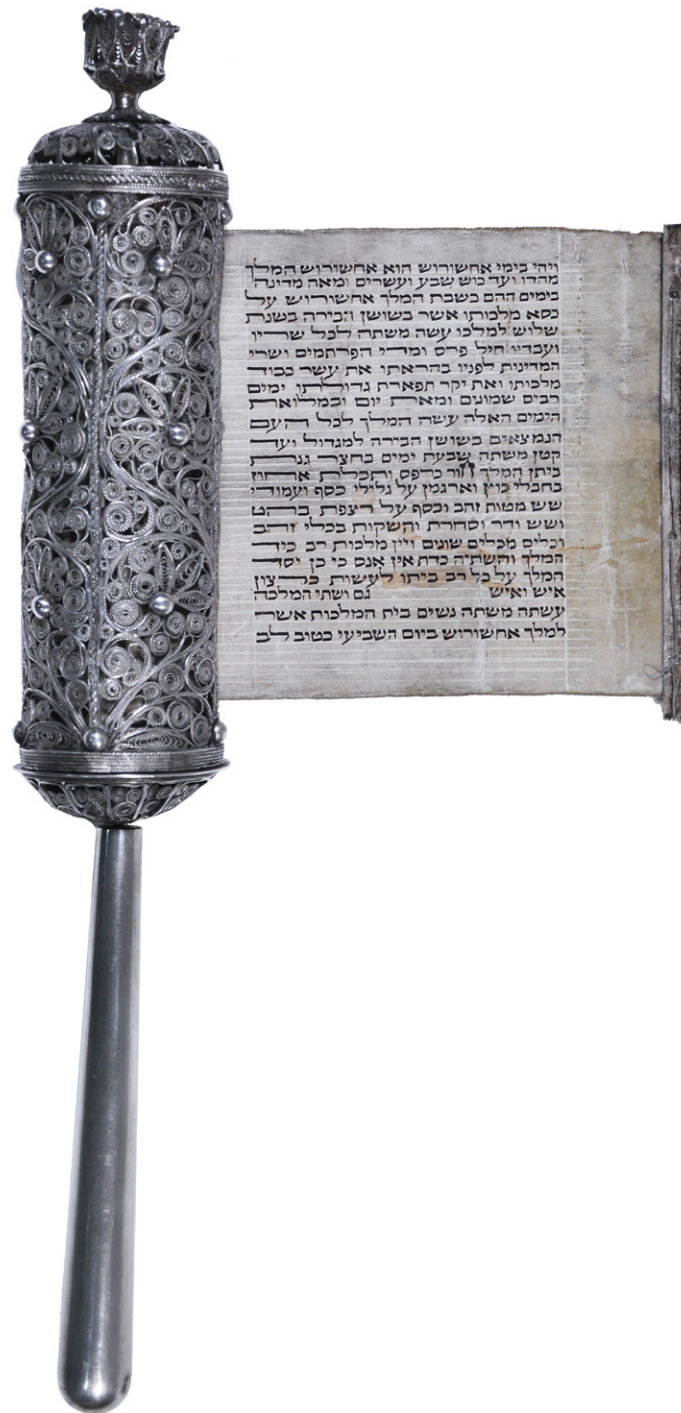 ויהי בימי אחשורוש הוא אחשורוש המלך
מהדו ועד כוש שבע ועשרים ומאה מדינה
בימים ההם כשבת המלך אחשורוש על
כסא מלכותו אשר בשושן הבירה בשנת
שלוש למלכו עשה משתה לכל שריו
ועבדיו חיל פרס ומדי הפרתמים ושרי
המדינות לפניו בהראתו את עשר כבוד
מלכותו ואת יקר תפארת גדולתו ימים
רבים שמונים ומאת יום ובמלואת
הימים האלה עשה המלך לכל העם
הנמצאים בשושן הבירה למגדול ועד
קטן משתה שבעת ימים בחצר גנת
ביתן המלך חור כרפס ותכלת אחוז
בחבלי בוץ וארגמן על גלילי כסף ועמודי
שש מטות זהב וכסף על רצפת בהט
ושש ודר וסחרת והשקות בכלי זהב
וכלים מכלים שונים ויין מלכות רב כיד
המלך והשתיה כדת אין אנס כי כן יסד
המלך על כל רב ביתו לעשות כרצון
איש ואיש גם ושתי המלכה
עשתה משתה נשים בית המלכות אשר
למלך אחשורוש ביום השביעי כטוב לב